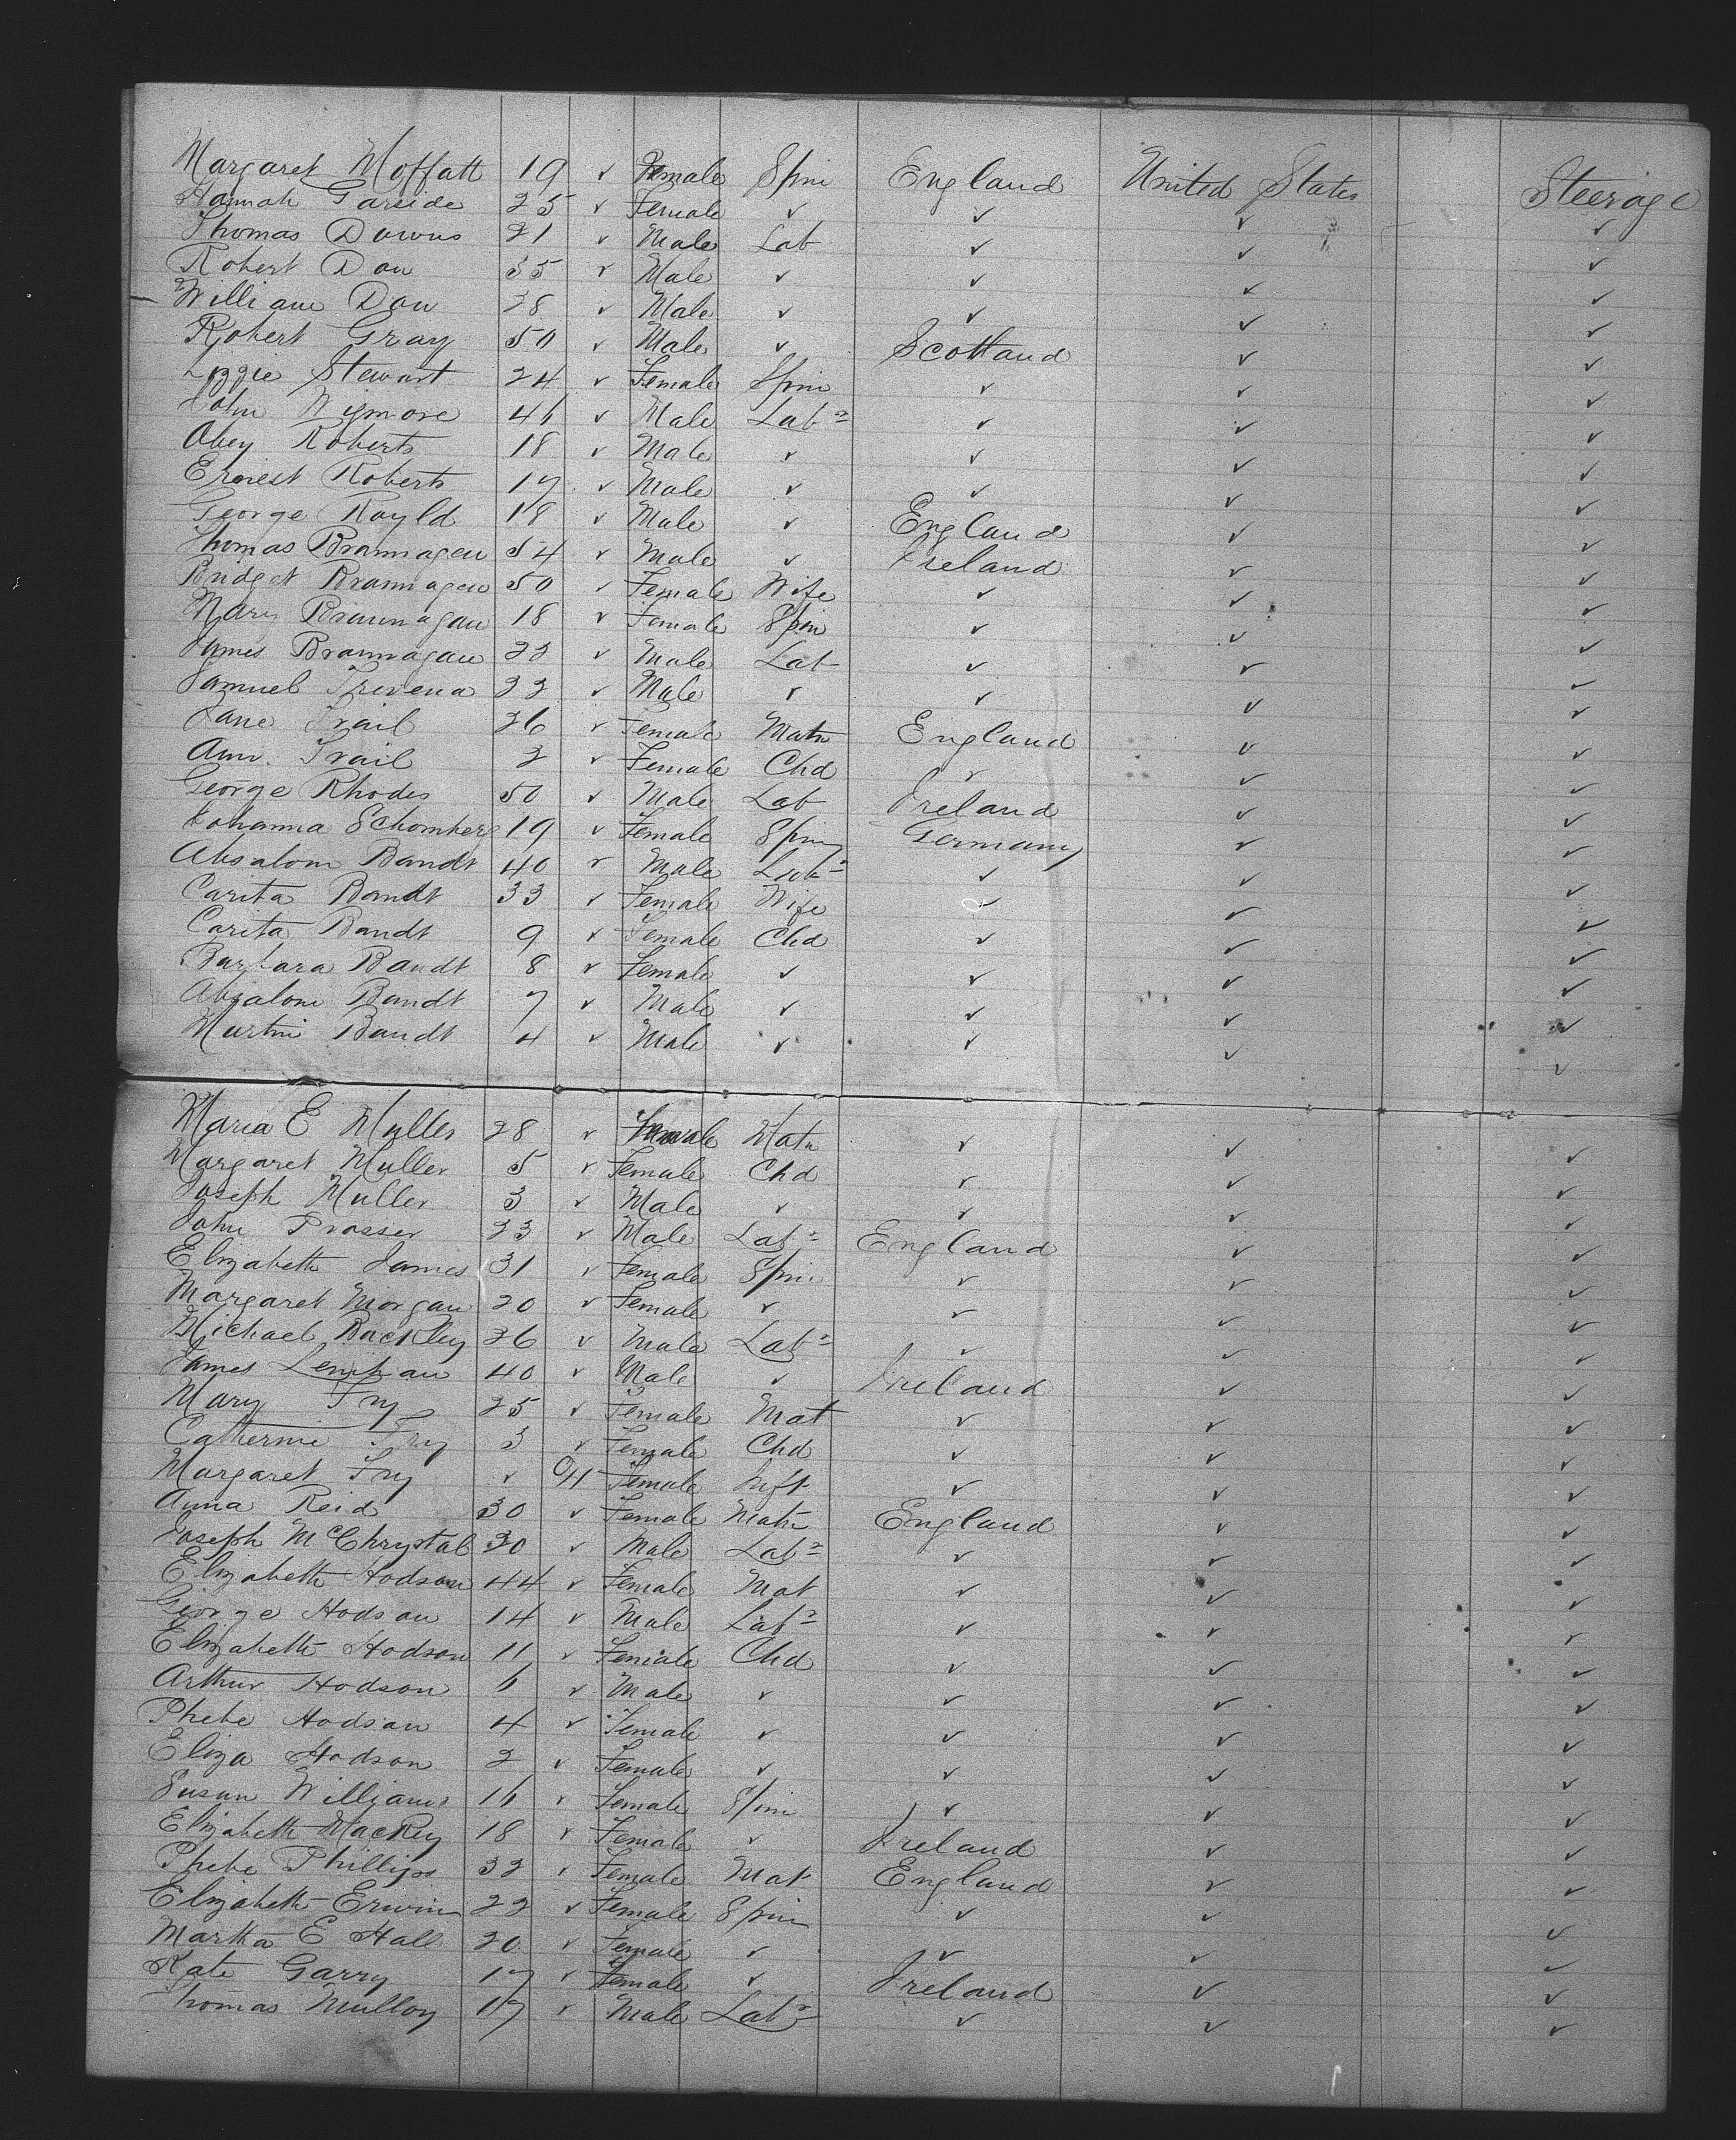 Margaret Moffatt 19 ✓ Female Spin England United States Steerage
Hannah Garside 25 ✓ Female ✓ ✓ ✓ ✓
Thomas Downs 21 ✓ Male Lab ✓ ✓ ✓
Robert Dow 35 ✓ Male ✓ ✓ ✓ ✓
William Dow 28 ✓ Male ✓ ✓ ✓ ✓
Robert Gray 50 ✓ Male ✓ Scotland ✓ ✓
Lizzie Stewart 24 ✓ Female Spin ✓ ✓ ✓
John Wymore 46 ✓ Male Labr ✓ ✓ ✓
Abey Roberts 18 ✓ Male ✓ ✓ ✓ ✓
Ernest Roberts 17 ✓ Male ✓ ✓ ✓ ✓
George Rayld 18 ✓ Male ✓ England ✓ ✓
Thomas Brannagan 54 ✓ Male ✓ Ireland ✓ ✓
Bridget Brannagan 50 ✓ Female Wife ✓ ✓ ✓
Mary Brannagan 18 ✓ Female Spin ✓ ✓ ✓
James Brannagan 22 ✓ Male Lab ✓ ✓ ✓
Samuel Trevena 22 ✓ Male ✓ ✓ ✓ ✓
Jane Trail 26 ✓ Female Matn England ✓ ✓
Ann Trail 2 ✓ Female Chd ✓ ✓ ✓
George Rhodes 50 ✓ Male Lab Ireland ✓ ✓
Johanna Schomberg 19 ✓ Female Spin Germany ✓ ✓
Absalom Bandt 40 ✓ Male Labr ✓ ✓ ✓
Carita Bandt 33 ✓ Female Wife ✓ ✓ ✓
Carita Bandt 9 ✓ Female Chd ✓ ✓ ✓
Barbara Bandt 8 ✓ Female ✓ ✓ ✓ ✓
Absalom Bandt 7 ✓ Male ✓ ✓ ✓ ✓
Martin Bandt 4 ✓ Male ✓ ✓ ✓ ✓
Maria E Muller 28 ✓ Female Matn ✓ ✓ ✓
Margaret Muller 5 ✓ Female Chd ✓ ✓ ✓
Joseph Muller 3 ✓ Male ✓ ✓ ✓ ✓
John Prosser 23 ✓ Male Labr England ✓ ✓
Elizabeth James 31 ✓ Female Spin ✓ ✓ ✓
Margaret Morgan 20 ✓ Female ✓ ✓ ✓ ✓
Michael Buckley 26 ✓ Male Labr ✓ ✓ ✓
James Lenihan 40 ✓ Male ✓ Ireland ✓ ✓
Mary Fry 25 ✓ Female Mat ✓ ✓ ✓
Catherine Fry 3 ✓ Female Chd ✓ ✓ ✓
Margaret Fry ✓ 011 Female Inft ✓ ✓ ✓
Anna Reid 30 ✓ Female Matn England ✓ ✓
Joseph McChrystal 30 ✓ Male Labr ✓ ✓ ✓
Elizabeth Hodson 44 ✓ Female Mat ✓ ✓ ✓
George Hodson 14 ✓ Male Labr ✓ ✓ ✓
Elizabeth Hodson 11 ✓ Female Chd ✓ ✓ ✓
Arthur Hodson 6 ✓ Male ✓ ✓ ✓ ✓
Phebe Hodson 4 ✓ Female ✓ ✓ ✓ ✓
Eliza Hodson 2 ✓ Female ✓ ✓ ✓ ✓
Susan Williams 16 ✓ Female Spin ✓ ✓ ✓
Elizabeth MacKey 18 ✓ Female ✓ Ireland ✓ ✓
Phebe Phillips 32 ✓ Female Mat England ✓ ✓
Elizabeth Erwin 22 ✓ Female Spin ✓ ✓ ✓
Martha E Hall 20 ✓ Female ✓ ✓ ✓ ✓
Kate Garry 17 ✓ Female ✓ Ireland ✓ ✓
Thomas Mulloy 17 ✓ Male Labr ✓ ✓ ✓